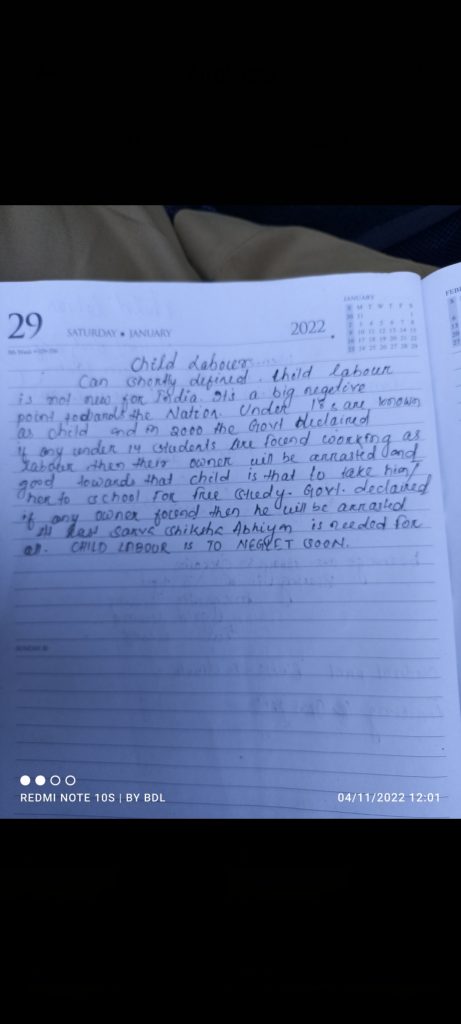 29
SATURDAY • JANUARY
2022
JANUARY
S M T W T F S
30 31 1
2 3 4 5 6 7 8
9 10 11 12 13 14 15
16 17 18 19 20 21 22
23 24 25 26 27 28 29
FEB
Child Labour
Can shortly defined. Child labour
is not new for India. It's a big negetive
point towards the Nation. Under 18's are known
as child and in 2000 the Govt declaired
if any under 14 students are focend coorking as
labour then their owner will be arrasted and
good towards that child is that to take him/
her to school For free study. Govt. declaired
if any owner focend then he will be arrasted
At last Sarva Shiksha Abhiyan is needed for
all. CHILD LABOUR IS TO NEGLET SOON.
SUNDAY 30
REDMI NOTE 10S | BY BDL
04/11/2022 12:01